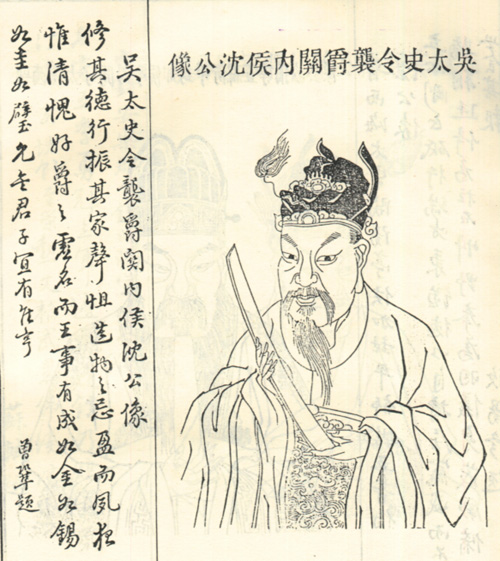 吳太史令襲爵關內侯沈公像
吳太史令襲爵関内侯沈公像
修其德行振其家聲怛造物之忌盈而夙夜
惟清愧好爵之虛名而王事有成如金如錫
如圭如璧允矣君子宜有亨
曾鞏題